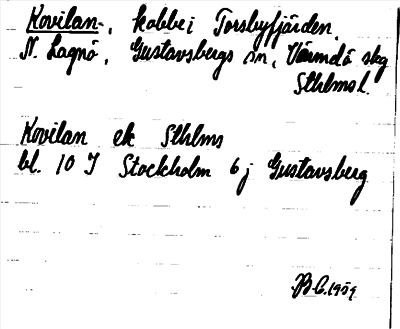 Kovilan-, kobbe i Torsbyfjärden,
N. Lagnö, Gustavsbergs sn, Värmdö skg
Sthlms l.
Kovilan ek Sthlms
bl. 10 I Stockholm 6 j Gustavsberg
1959